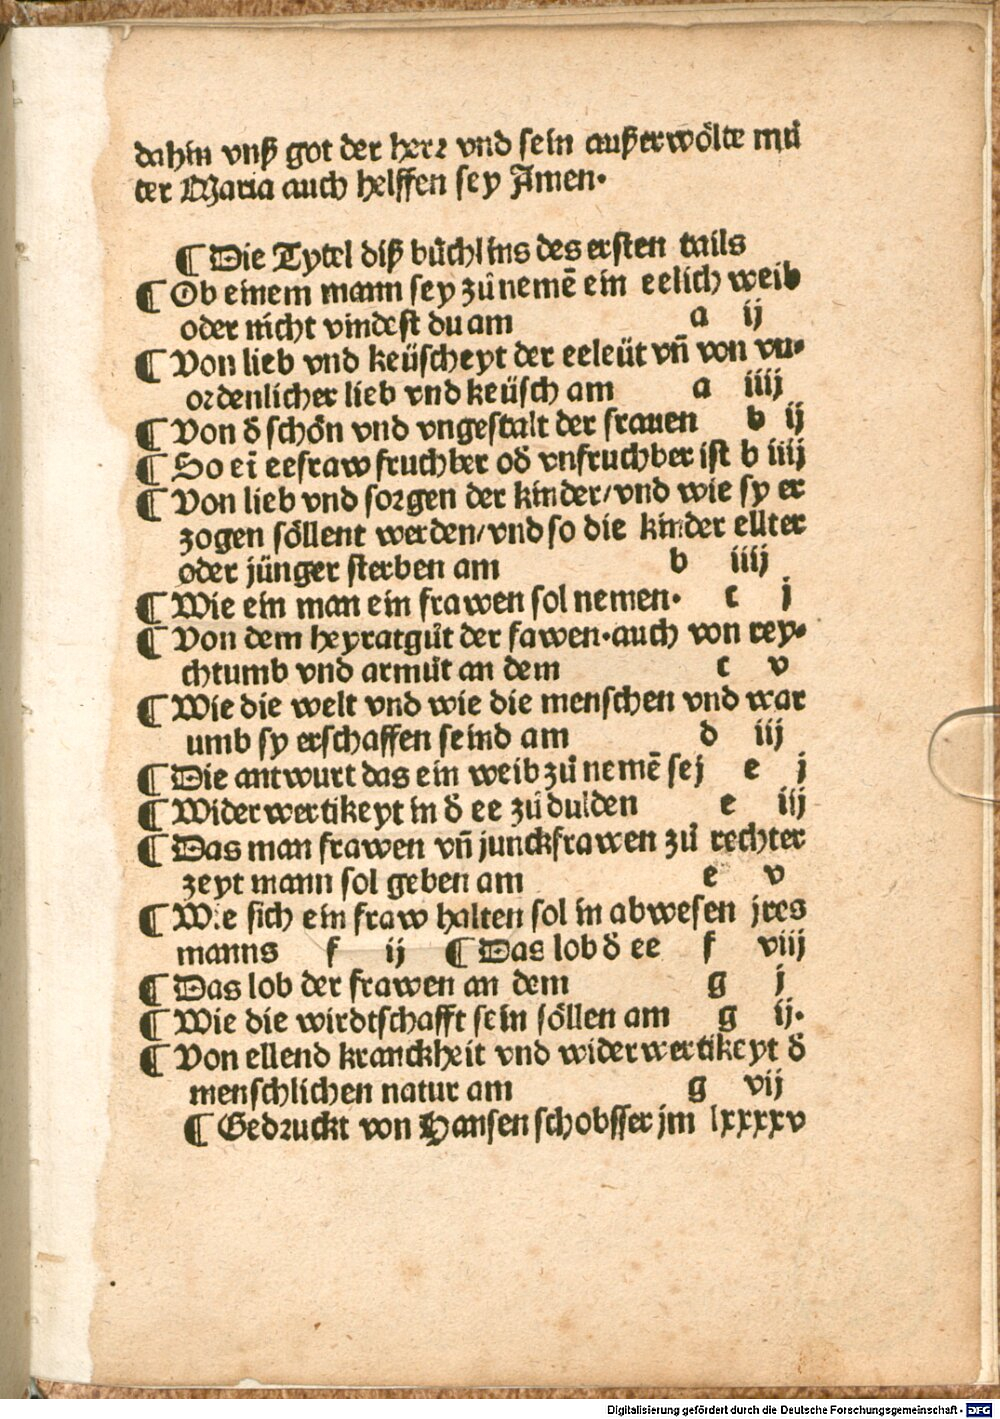 dahin vnß got der herr vnd sein außerwoͤlte muͦ
ter Maria auch helffen sey Amen.
¶ Die Tytel diß buͤchlins des ersten tails
¶ Ob einem mann sey zuͦ nemē ein eelich weib
oder nicht vindest du am a ij
¶ Von lieb vnd keüscheyt der eeleüt vn̄ von vn⸗
ordenlicher lieb vnd keüsch am a iiij
¶ Von d̄ schoͤn vnd vngestalt der frauen b ij
¶ So eī eefraw fruchber od̄ vnfruchber ist b iiij
¶ Von lieb vnd sorgen der kinder/vnd wie sy er
zogen soͤllent werden/vnd so die kinder ellter
oder jünger sterben am b iiij
¶ Wie ein man ein frawen sol nemen. c j
¶ Von dem heyratguͦt der fawen.auch von rey⸗
chtumb vnd armuͦt an dem c v
¶ Wie die welt vnd wie die menschen vnd war
umb sy erschaffen seind am d iij
¶ Die antwurt das ein weib zuͦ nemē sej e j
¶ Widerwertikeyt in d̄ ee zuͦ dulden e iij
¶ Das man frawen vn̄ junckfrawen zuͦ rechter
zeyt mann sol geben am e v
¶ Wie sich ein fraw halten sol in abwesen jres
manns f ij ¶ Das lob d̄ ee f viij
¶ Das lob der frawen an dem g j
¶ Wie die wirdtschafft sein soͤllen am g ij.
¶ Von ellend kranckheit vnd widerwertikeyt d̄
menschlichen natur am g vij
¶ Gedruckt von Hansen schobsser jm lxxxxv
Digitalisierung gefördert durch die Deutsche Forschungsgemeinschaft - DFG